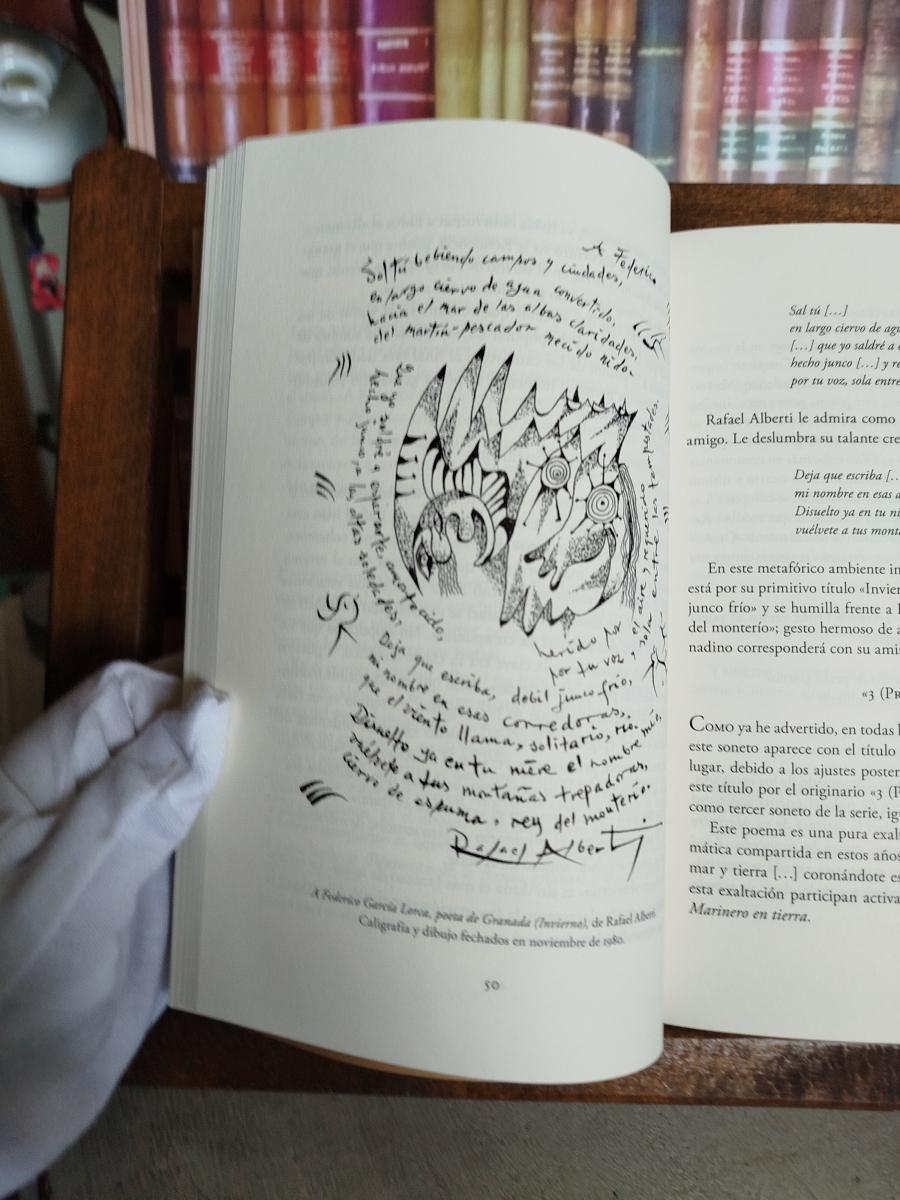 A Federico
Sal tú bebiendo campos y ciudades,
en largo ciervo de agua convertido,
hacia el mar de las albas claridades,
del martín-pescador mecido nido.
Que yo saldré a esperarte amortecido,
hecho junco, a las altas soledades,
herido por
el aire y requerido
por tu voz, sola entre las tempestades.
Deja que escriba, débil junco frío,
mi nombre en esas corredoras,
que el viento llama, solitario, río.
Disuelto ya en tu nieve el nombre mío,
vuélvete a tus montañas trepadoras,
ciervo de espuma, rey del monterío.
Rafael Alberti
A Federico García Lorca, poeta de Granada (Invierno), de Rafael Alberti
Caligrafía y dibujo fechados en noviembre de 1980.
50
Sal tú […]
en largo ciervo de
[…] que yo saldré a
hecho junco […] y
por tu voz, sola
Rafael Alberti le admira como
amigo. Le deslumbra su talante
Deja que escriba
mi nombre en esas
Disuelto ya en tu
vuélvete a tus
En este metafórico ambiente
está por su primitivo título
junco frío» y se humilla frente a
del monterío»; gesto hermoso de
nadino corresponderá con su
«3
Como ya he advertido, en todas
este soneto aparece con el título
lugar, debido a los ajustes
este título por el originario «3
como tercer soneto de la serie,
Este poema es una pura
mática compartida en estos años
mar y tierra […] coronándote
esta exaltación participan
Marinero en tierra.